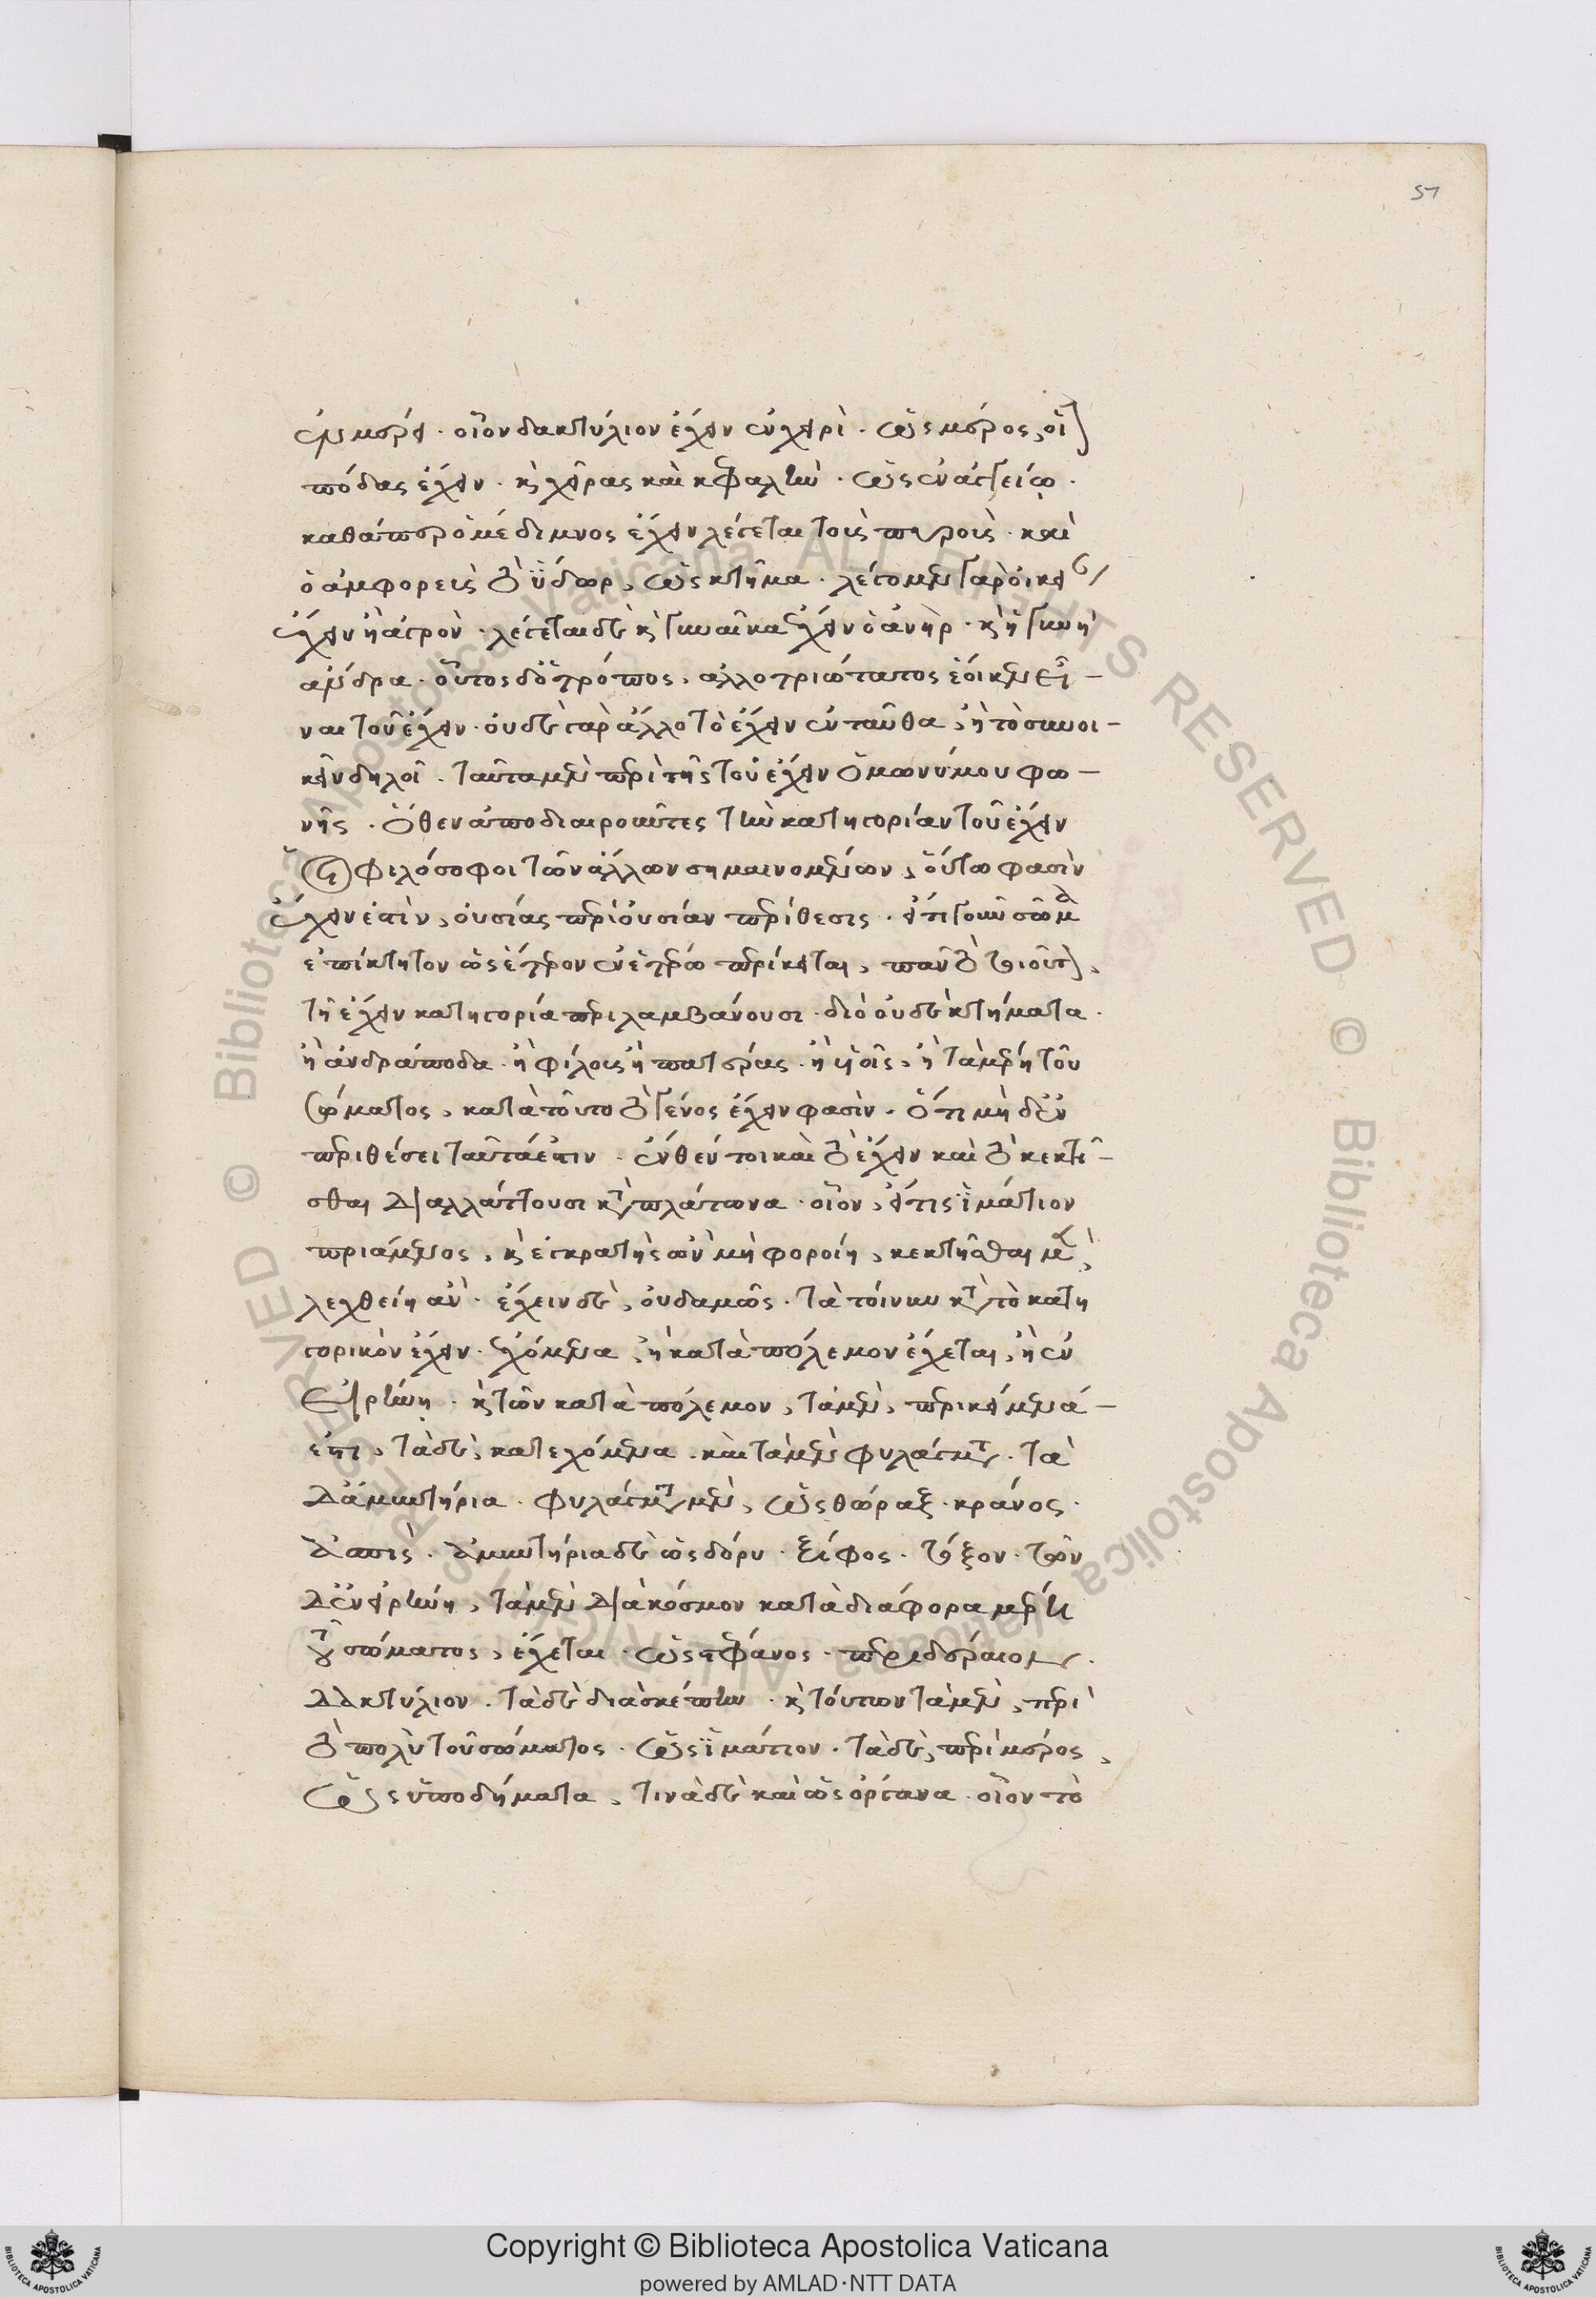 51
ἐν μέρει· οἷον δακτύλιον ἔχειν ἐν χειρὶ· ὡς μέρος, οἷον
πόδας ἔχειν· καὶ χεῖρας καὶ κεφαλὴν· ὡς ἐν ἀγγείῳ·
καθάπερ ὁ μέδιμνος ἔχειν λέγεται τοὺς πυροὺς· καὶ
ὁ ἀμφορεὺς τὸ ὕδωρ, ὡς κτῆμα· λέγομεν γὰρ οἰκίαν
ἔχειν ἢ ἀγρὸν· λέγεται δὲ καὶ γυναῖκα ἔχειν ὁ ἀνὴρ· καὶ ἡ γυνὴ
ἄνδρα· οὗτος δ' ὁ τρόπος, ἀλλοτριώτατος ἔοικεν εἶ-
ναι τοῦ ἔχειν· οὐδὲ γὰρ ἄλλο τὸ ἔχειν ἐνταῦθα, ἢ τὸ συνοι-
κεῖν δηλοῖ· ταῦτα μὲν περὶ τῆς τοῦ ἔχειν ὁμωνύμου φω-
νῆς· ὅθεν ἀποδιαιροῦντες τὴν κατηγορίαν τοῦ ἔχειν
οἱ φιλόσοφοι τῶν ἄλλων σημαινομένων, οὕτω φασὶν
ἔχειν ἐστὶν, οὐσίας περὶ οὐσίαν περίθεσις· εἴ τι γοῦν σῶμα
ἐπίκτητον ὡς ἕτερον ἐν ἑτέρῳ περίκειται, πᾶν τὸ τοιοῦτον,
τῇ ἔχειν κατηγορίᾳ περιλαμβάνουσι· διὸ οὐδὲ κτήματα·
ἢ ἀνδράποδα· ἢ φίλους ἢ πατέρας· ἢ υἱοῖς, ἢ τὰ μέρη τοῦ
σώματος, κατὰ τοῦτο τὸ γένος ἔχειν φασὶν· ὅτι μὴ δ' ἐν
περιθέσει ταῦτά ἐστιν· ἐνθέν τοι καὶ τὸ ἔχειν καὶ τὸ κεκτῆ-
σθαι διαλλάττουσι κατὰ πλάτωνα· οἷον, εἴ τις ἱμάτιον
πριάμενος, καὶ ἐγκρατὴς ὢν μὴ φοροίη, κεκτῆσθαι μὲν,
λεχθείη ἂν· ἔχειν δὲ, οὐδαμῶς· τὰ τοίνυν κατὰ τὸ κατη
γορικὸν ἔχειν· ἐχόμενα, ἢ κατὰ πόλεμον ἔχεται, ἢ ἐν
εἰρήνῃ· καὶ τῶν κατὰ πόλεμον, τὰ μὲν, περικείμενά-
ἐστι, τὰ δὲ, κατεχόμενα· καὶ τὰ μὲν φυλακτικά· τὰ
δ' ἀμυντήρια· φυλακτικὰ μὲν, ὡς θώραξ· κράνος·
ἀσπὶς· ἀμυντήρια δὲ ὡς δόρυ· ξίφος· τόξον· τῶν
δ' ἐν εἰρήνῃ, τὰ μὲν διὰ κόσμον κατὰ διάφορα μέρη
τοῦ σώματος, ἔχεται· ὡς στέφανος· περιδέραιον·
δακτύλιον· τὰ δὲ διὰ σκέπην· καὶ τούτων τὰ μὲν, περὶ
τὸ πολὺ τοῦ σώματος· ὡς ἱμάτιον· τὰ δὲ, περὶ μέρος,
ὡς ὑποδήματα, τινὰ δὲ καὶ ὡς ὄργανα· οἷον τὸ
© Biblioteca Apostolica Vaticana ALL RIGHTS RESERVED © Biblioteca Apostolica Vaticana ALL RIGHTS RESERVED
Copyright © Biblioteca Apostolica Vaticana
powered by AMLAD·NTT DATA
BIBLIOTECA APOSTOLICA VATICANA
BIBLIOTECA APOSTOLICA VATICANA